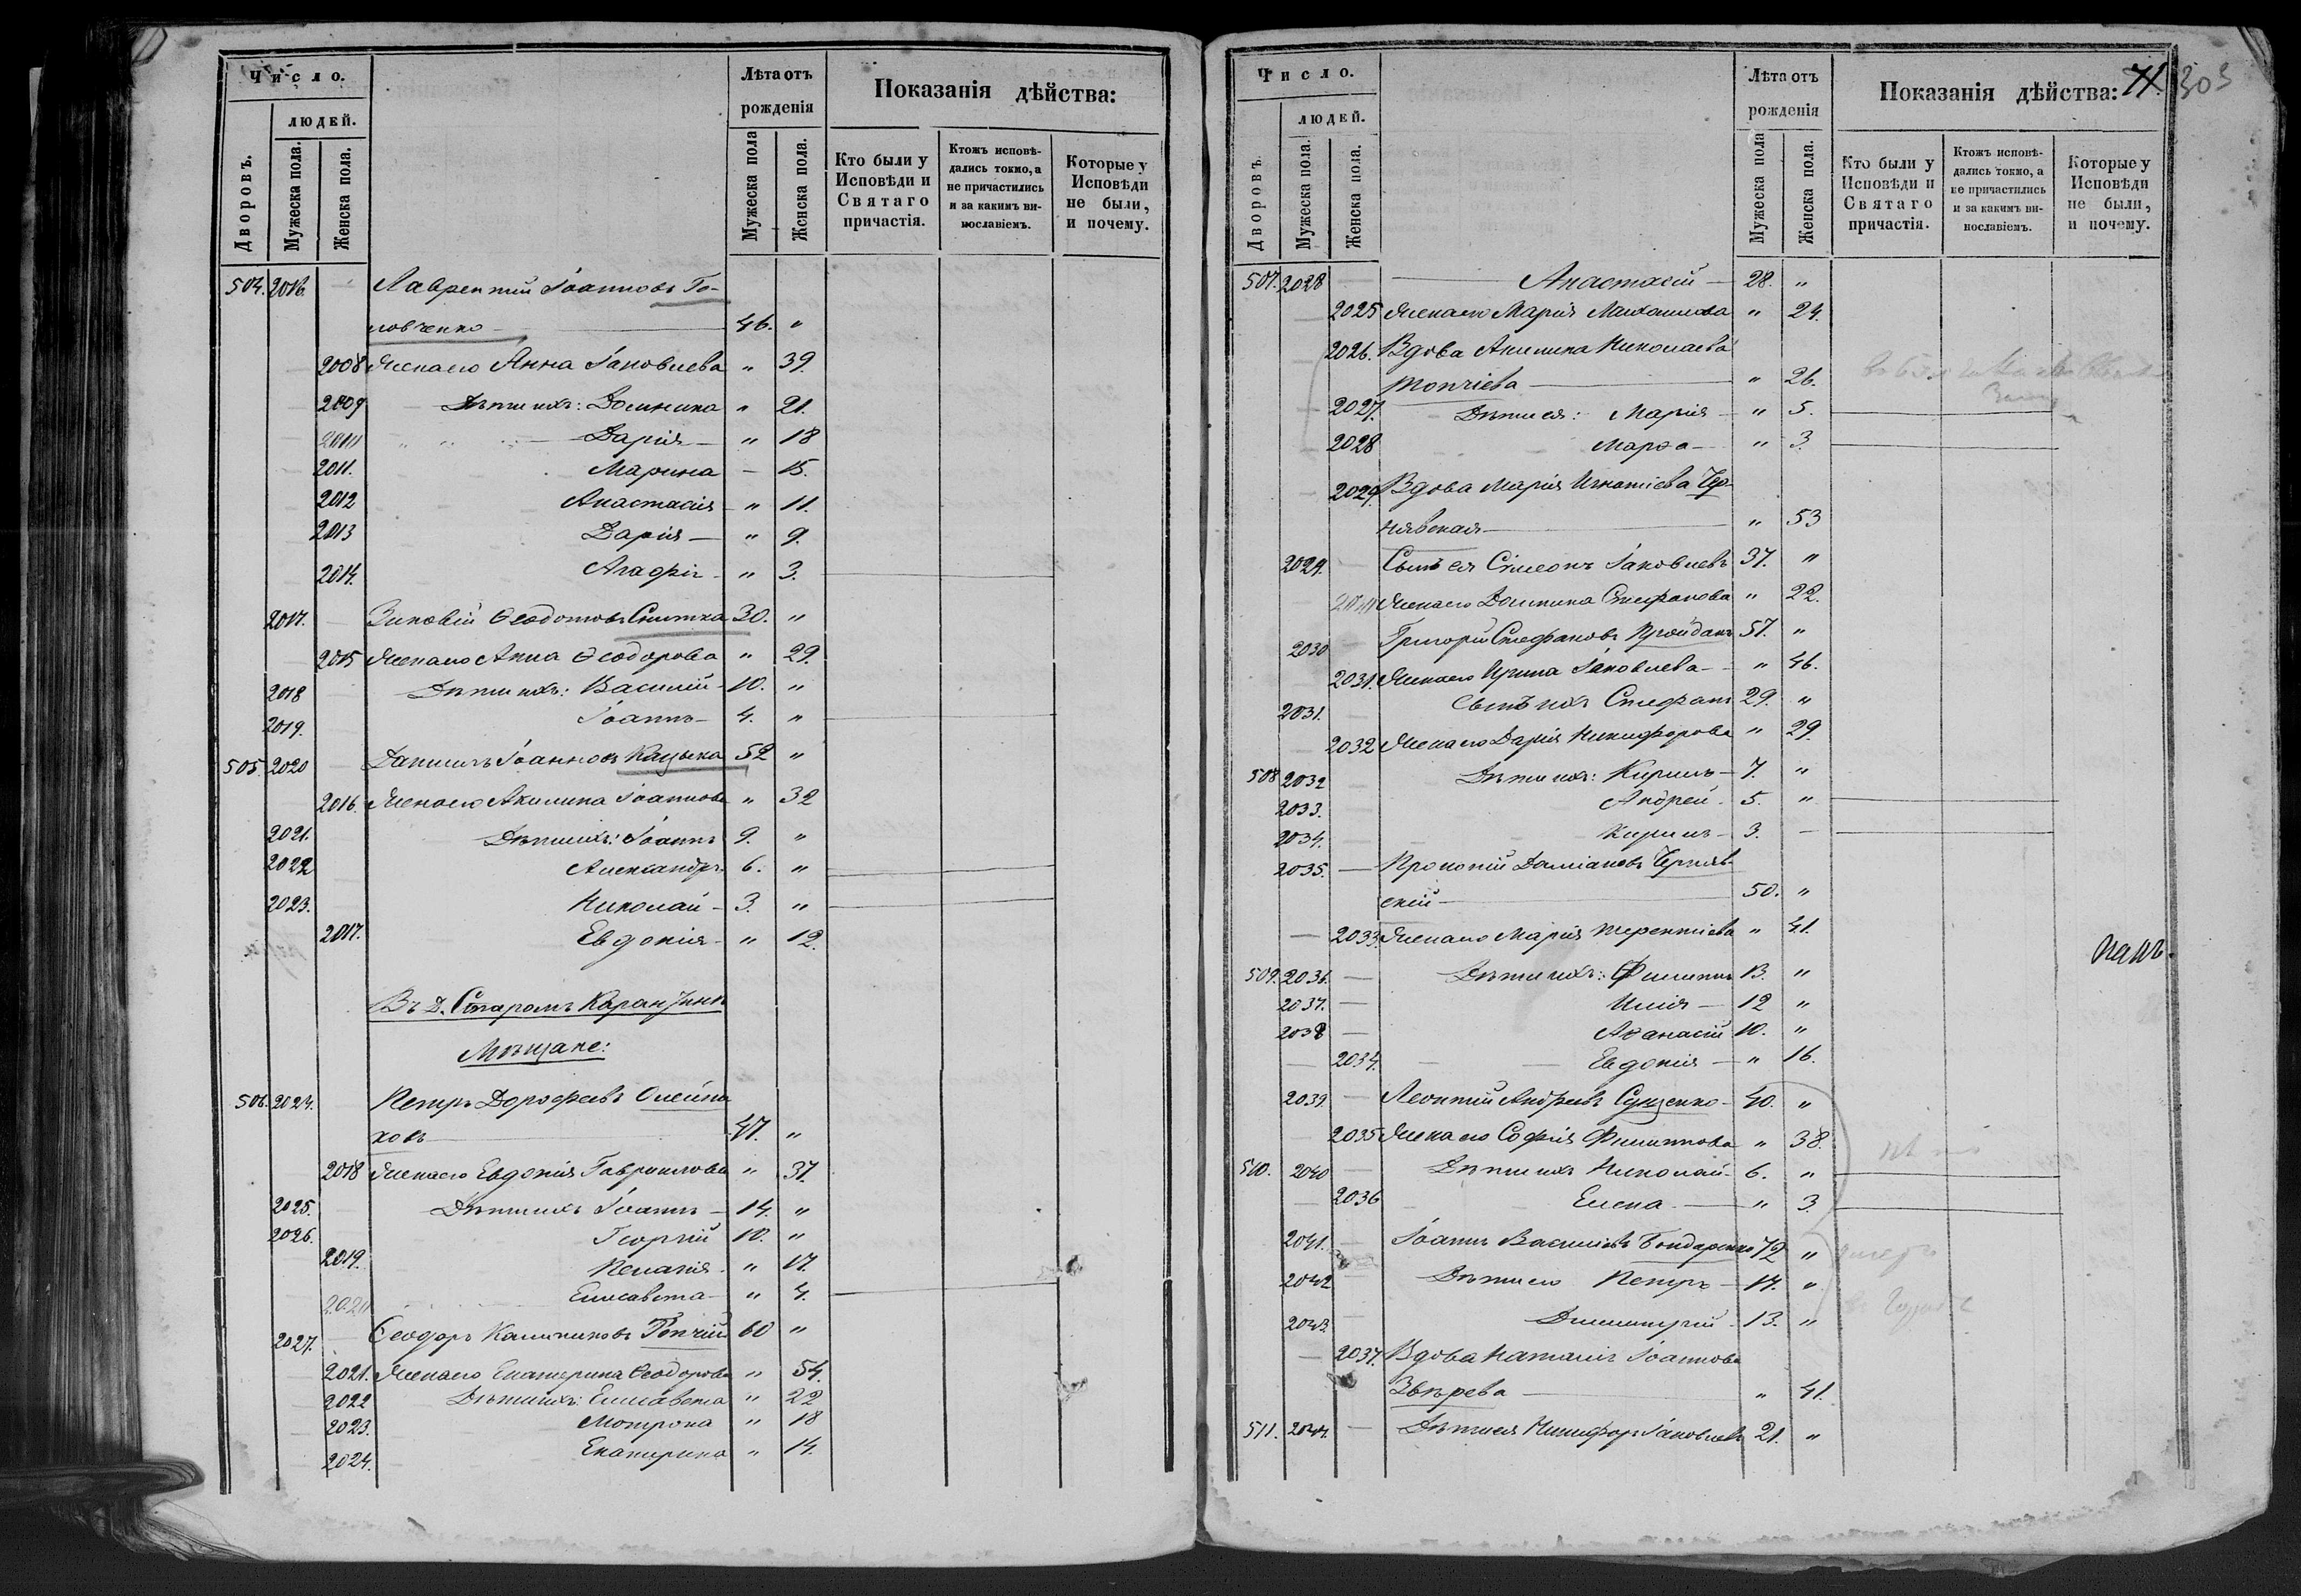 Число.
Лѣта отъ рожденія
Показанія дѣйства:
людей.
Дворовъ.
Мужеска пола.
Женска пола.
Мужеска пола
Женска пола.
Кто были у Исповѣди и Святаго причастія.
Ктожъ исповѣдались токмо, а не причастились и за какимъ винословіемъ.
Которые у Исповѣди не были, и почему.
504. 2016. Лаврентий Іоанновъ Го-
ловченко 46. "
2008 Жена его Анна Іаковлева " 39.
2009 Дѣти ихъ: Домникия " 21.
2010 Дарія " 18
2011. Марина - 15.
2012 Анастасія " 11.
2013 Дарія " 9.
2014. Агафія " 3.
2017. Зиновій Ѳеодотовъ Снитка 30. "
2015 Жена его Анна Ѳеодорова " 29.
2018 Дѣти ихъ: Василий 10. "
2019. Іоаннъ 4. "
505. 2020 Даниилъ Іоанновъ Кацыка 52 "
2016. Жена его Акилина Іоаннова " 32
2021. Дѣти ихъ: Іоаннъ 9. "
2022 Александръ 6. "
2023. Николай 3. "
2017. Евдокія " 12.
Въ Д. Старомъ Карантинѣ
Мѣщане:
506. 2024. Петръ Дорофеевъ Олейни-
ковъ 47. "
2018 Жена его Евдокія Гавриилова " 37.
2025. Дѣти ихъ Іоаннъ 14. "
2026. Георгий 10. "
2019. Пелагія " 17
2020 Елисавета " 4.
2027. Ѳеодоръ Калиниковъ Топчий 60 "
2021. Жена его Екатерина Ѳеодорова " 54.
2022 Дѣти ихъ: Елисавета " 22
2023. Мотрона " 18
2024. Екатерина " 14.
71. 303
Число.
Лѣта отъ рожденія
Показанія дѣйства:
людей.
Дворовъ.
Мужеска пола.
Женска пола.
Мужеска пола
Женска пола.
Кто были у Исповѣди и Святаго причастія.
Ктожъ исповѣдались токмо, а не причастились и за какимъ винословіемъ.
Которые у Исповѣди не были, и почему.
507. 2028 Анастасій 28. "
2025 Жена его Марія Михаилова " 24.
2026. Вдова Акилина Николаева
Топчіева " 26.
2027. Дѣти ея: Марія " 5.
2028 Марѳа " 3.
2029. Вдова Марія Игнатіева Чер-
нявская " 53
2029. Сынъ ея Сімеонъ Іаковлевъ 37. "
2030 Жена его Домника Стефанова " 22.
2030 Григорій Стефановъ Пройданъ 57. "
2031. Жена его Ирина Іаковлева " 46.
2031. Сынъ ихъ Стефанъ 29. "
2032 Жена его Дарія Никифорова " 29.
508 2032 Дѣти ихъ: Кирилъ 7. "
2033. Андрей 5. "
2034. Кирилъ 3. -
2035. Прокопій Даміановъ Черняв-
скій 50. "
2033. Жена его Марія Терентіева " 41.
509. 2036. Дѣти ихъ: Филиппъ 13. "
2037. Илія 12 "
2038 Аѳанасій 10. "
2034. Евдокія " 16.
2039. Леонтий Андреевъ Сущенко 40. "
2035 Жена его Софія Филиппова " 38.
510. 2040 Дѣти ихъ Николай 6. "
2036 Елена " 3.
2041. Іоаннъ Василіевъ Бондаренко 72 "
2042 Дѣти его Петръ 17. "
2043. Димитрій 13. "
2037. Вдова Наталія Іоаннова
Звѣрева " 41.
511. 2044. Дѣти ея Никифоръ Іаковлевъ 21. "